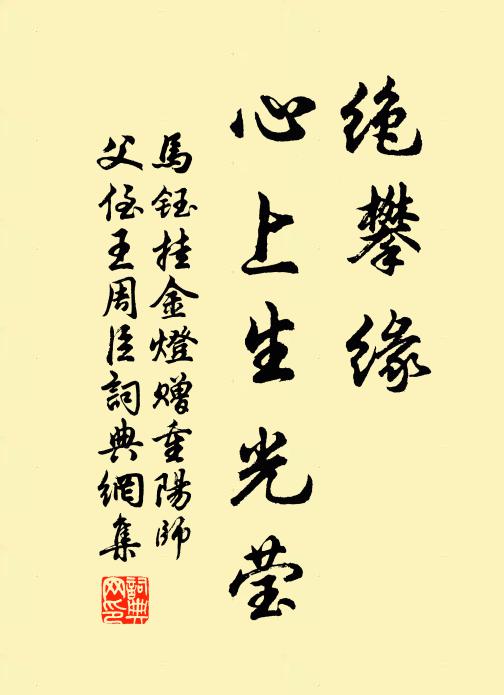 绝攀缘
心上生光莹
馬鈺挂金燈赠重陽師
父侄王周臣詞典網集
詞典网印